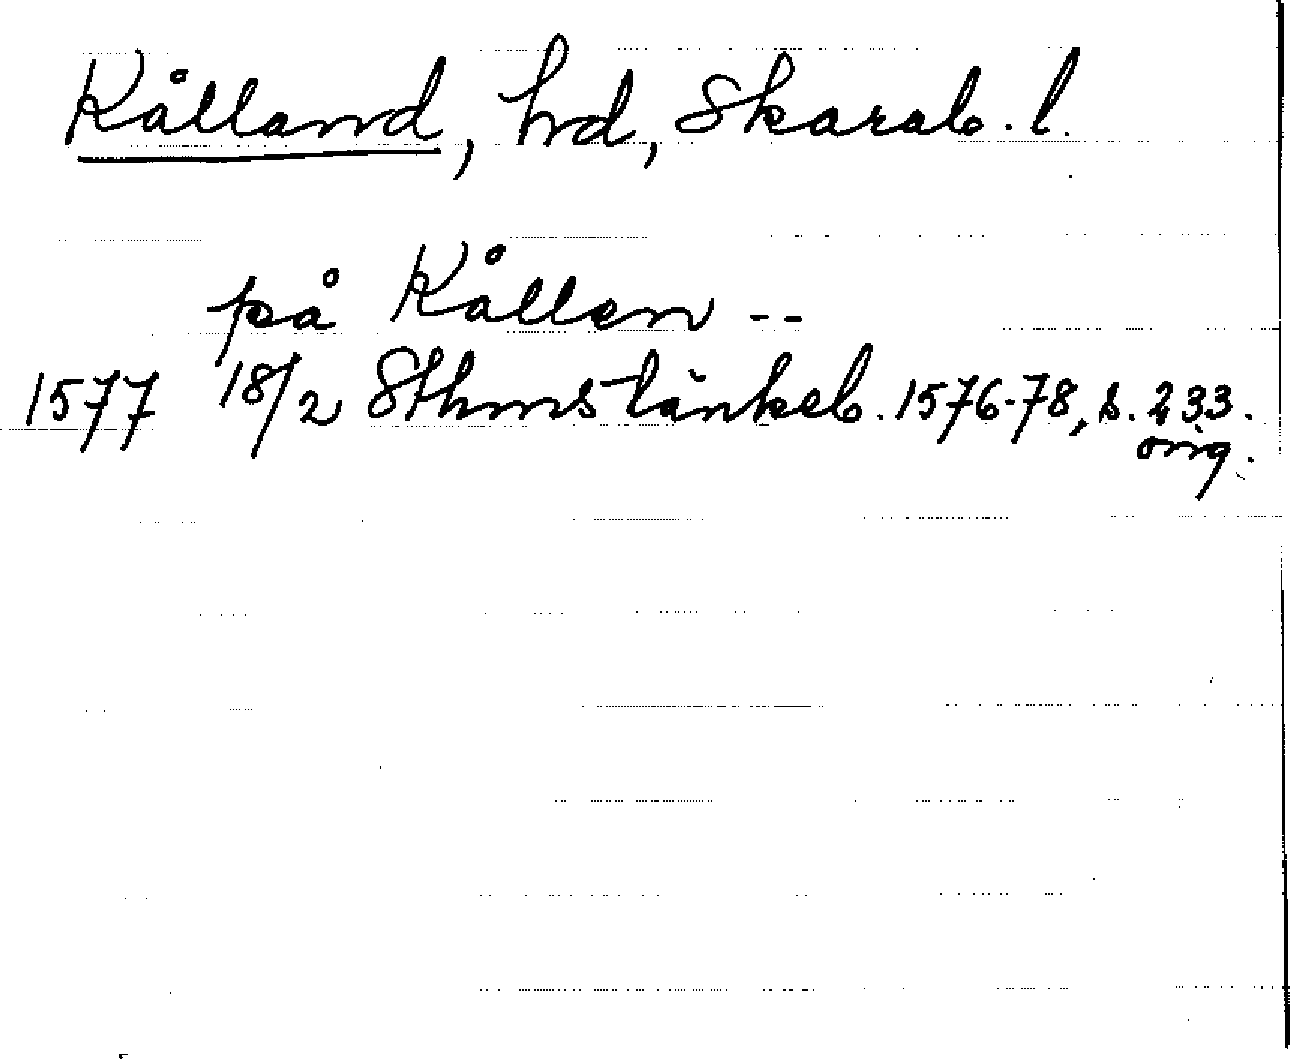 Kålland, hd, Skarab. l.
på Kållen --
1577 18/2 Sthmstänkeb. 1576-78, s. 233.
orig.